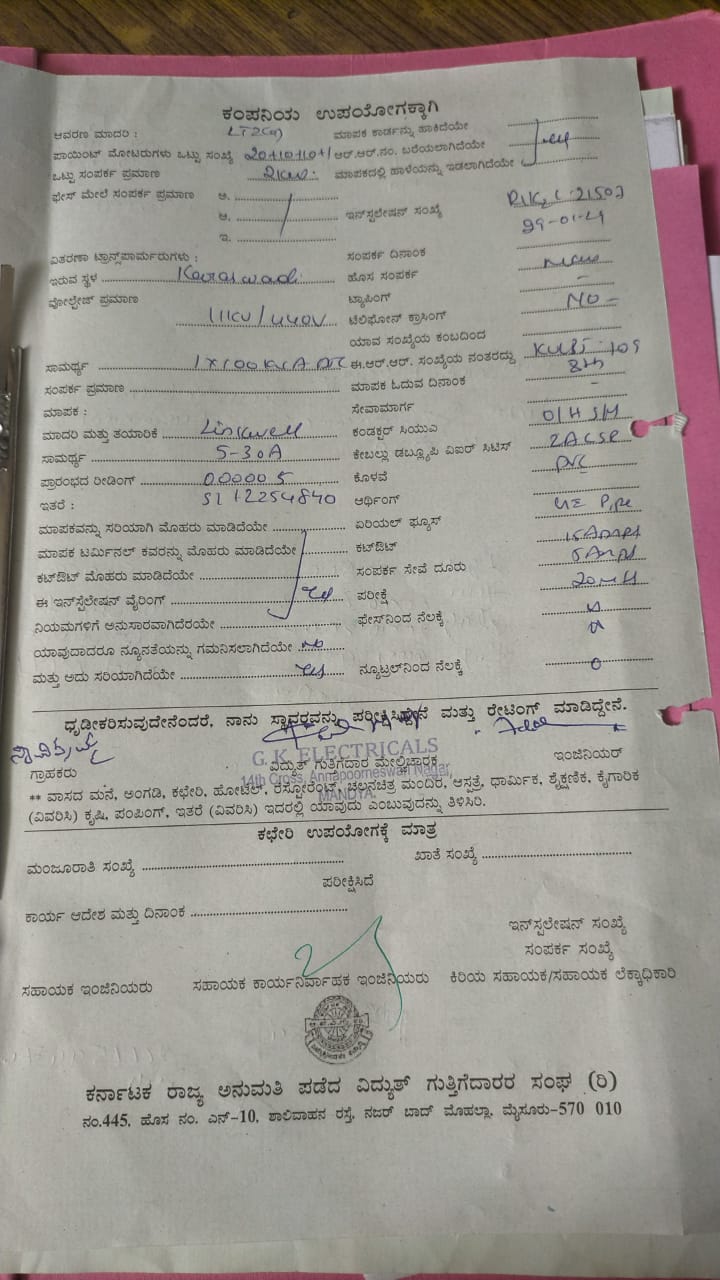 ಕಂಪನಿಯ ಉಪಯೋಗಕ್ಕಾಗಿ
ಆವರಣ ಮಾದರಿ : LT2(a) ಮಾಪಕ ಕಾರ್ಡನ್ನು ಹಾಕಿದೆಯೇ
ಪಾಯಿಂಟ್ ಮೋಟರುಗಳು ಒಟ್ಟು ಸಂಖ್ಯೆ ಆರ್.ಆರ್.ನಂ. ಬರೆಯಲಾಗಿದೆಯೇ yes
ಒಟ್ಟು ಸಂಪರ್ಕ ಪ್ರಮಾಣ 2KW. ಮಾಪಕದಲ್ಲಿ ಹಾಳೆಯನ್ನು ಇಡಲಾಗಿದೆಯೇ
ಫೇಸ್ ಮೇಲೆ ಸಂಪರ್ಕ ಪ್ರಮಾಣ ಅ.
ಆ. ಇನ್‌ಸ್ಟಲೇಷನ್ ಸಂಖ್ಯೆ
29-01-21
ಇ.
ವಿತರಣಾ ಟ್ರಾನ್ಸ್‌ಫಾರ್ಮರುಗಳು : ಸಂಪರ್ಕ ದಿನಾಂಕ
ಇರುವ ಸ್ಥಳ ಹೊಸ ಸಂಪರ್ಕ New
ವೋಲ್ಟೇಜ್ ಪ್ರಮಾಣ ಟ್ಯಾಪಿಂಗ್ -
11KV/440V ಟೆಲಿಫೋನ್ ಕ್ರಾಸಿಂಗ್ NO -
ಯಾವ ಸಂಖ್ಯೆಯ ಕಂಬದಿಂದ
ಸಾಮರ್ಥ್ಯ 1x100KVA ಈ.ಆರ್.ಆರ್. ಸಂಖ್ಯೆಯ ನಂತರದ್ದು
ಸಂಪರ್ಕ ಪ್ರಮಾಣ ಮಾಪಕ ಓದುವ ದಿನಾಂಕ 8th
ಮಾಪಕ : ಸೇವಾಮಾರ್ಗ -
ಮಾದರಿ ಮತ್ತು ತಯಾರಿಕೆ Linkwell ಕಂಡಕ್ಟರ್ ಸಿಯುವಿ
ಸಾಮರ್ಥ್ಯ 5-30A ಕೇಬಲ್ಲು ಡಬ್ಲ್ಯೂಪಿ ವಿಐರ್ ಸಿಟಿಸ್ 2ACSR
ಪ್ರಾರಂಭದ ರೀಡಿಂಗ್ 00000 5 ಕೊಳವೆ PVC
ಇತರೆ : ಆರ್ಥಿಂಗ್
ಮಾಪಕವನ್ನು ಸರಿಯಾಗಿ ಮೊಹರು ಮಾಡಿದೆಯೇ ಏರಿಯಲ್ ಫ್ಯೂಸ್
ಮಾಪಕ ಟರ್ಮಿನಲ್ ಕವರನ್ನು ಮೊಹರು ಮಾಡಿದೆಯೇ ಕಟ್‌ಔಟ್
ಕಟ್‌ಔಟ್ ಮೊಹರು ಮಾಡಿದೆಯೇ ಸಂಪರ್ಕ ಸೇವೆ ದೂರು
ಈ ಇನ್‌ಸ್ಟಲೇಷನ್ ವೈರಿಂಗ್ yes ಪರೀಕ್ಷೆ
ನಿಯಮಗಳಿಗೆ ಅನುಸಾರವಾಗಿದೆರಯೇ ಫೇಸ್‌ನಿಂದ ನೆಲಕ್ಕೆ
ಯಾವುದಾದರೂ ನ್ಯೂನತೆಯನ್ನು ಗಮನಿಸಲಾಗಿದೆಯೇ No
ಮತ್ತು ಅದು ಸರಿಯಾಗಿದೆಯೇ yes ನ್ಯೂಟ್ರಲ್‌ನಿಂದ ನೆಲಕ್ಕೆ 0
ಧೃಡೀಕರಿಸುವುದೇನೆಂದರೆ, ನಾನು ಸ್ಥಾವರವನ್ನು ಪರೀಕ್ಷಿಸಿದ್ದೇನೆ ಮತ್ತು ರೇಟಿಂಗ್ ಮಾಡಿದ್ದೇನೆ.
G.K ELECTRICALS
ಗ್ರಾಹಕರು ವಿದ್ಯುತ್ ಗುತ್ತಿಗೆದಾರ ಮೇಲ್ವಿಚಾರಕ ಇಂಜಿನಿಯರ್
14th Cross, Annapoorneswari Nagar,
MANDYA.
** ವಾಸದ ಮನೆ, ಅಂಗಡಿ, ಕಛೇರಿ, ಹೋಟೆಲ್, ರೆಸ್ಟೋರೆಂಟ್, ಚಲನಚಿತ್ರ ಮಂದಿರ, ಆಸ್ಪತ್ರೆ, ಧಾರ್ಮಿಕ, ಶೈಕ್ಷಣಿಕ, ಕೈಗಾರಿಕ
(ವಿವರಿಸಿ) ಕೃಷಿ, ಪಂಪಿಂಗ್, ಇತರೆ (ವಿವರಿಸಿ) ಇದರಲ್ಲಿ ಯಾವುದು ಎಂಬುವುದನ್ನು ತಿಳಿಸಿರಿ.
ಕಛೇರಿ ಉಪಯೋಗಕ್ಕೆ ಮಾತ್ರ
ಮಂಜೂರಾತಿ ಸಂಖ್ಯೆ ಖಾತೆ ಸಂಖ್ಯೆ
ಪರೀಕ್ಷಿಸಿದೆ
ಕಾರ್ಯ ಆದೇಶ ಮತ್ತು ದಿನಾಂಕ
ಇನ್‌ಸ್ಪಲೇಷನ್ ಸಂಖ್ಯೆ
ಸಂಪರ್ಕ ಸಂಖ್ಯೆ
ಸಹಾಯಕ ಇಂಜಿನಿಯರು ಸಹಾಯಕ ಕಾರ್ಯನಿರ್ವಾಹಕ ಇಂಜಿನಿಯರು ಕಿರಿಯ ಸಹಾಯಕ/ಸಹಾಯಕ ಲೆಕ್ಕಾಧಿಕಾರಿ
ಕರ್ನಾಟಕ ರಾಜ್ಯ ಅನುಮತಿ ಪಡೆದ ವಿದ್ಯುತ್ ಗುತ್ತಿಗೆದಾರರ ಸಂಘ (ರಿ)
ನಂ.445, ಹೊಸ ನಂ. ಎನ್-10, ಶಾಲಿವಾಹನ ರಸ್ತೆ, ನಜರ್ ಬಾದ್ ಮೊಹಲ್ಲಾ, ಮೈಸೂರು-570 010